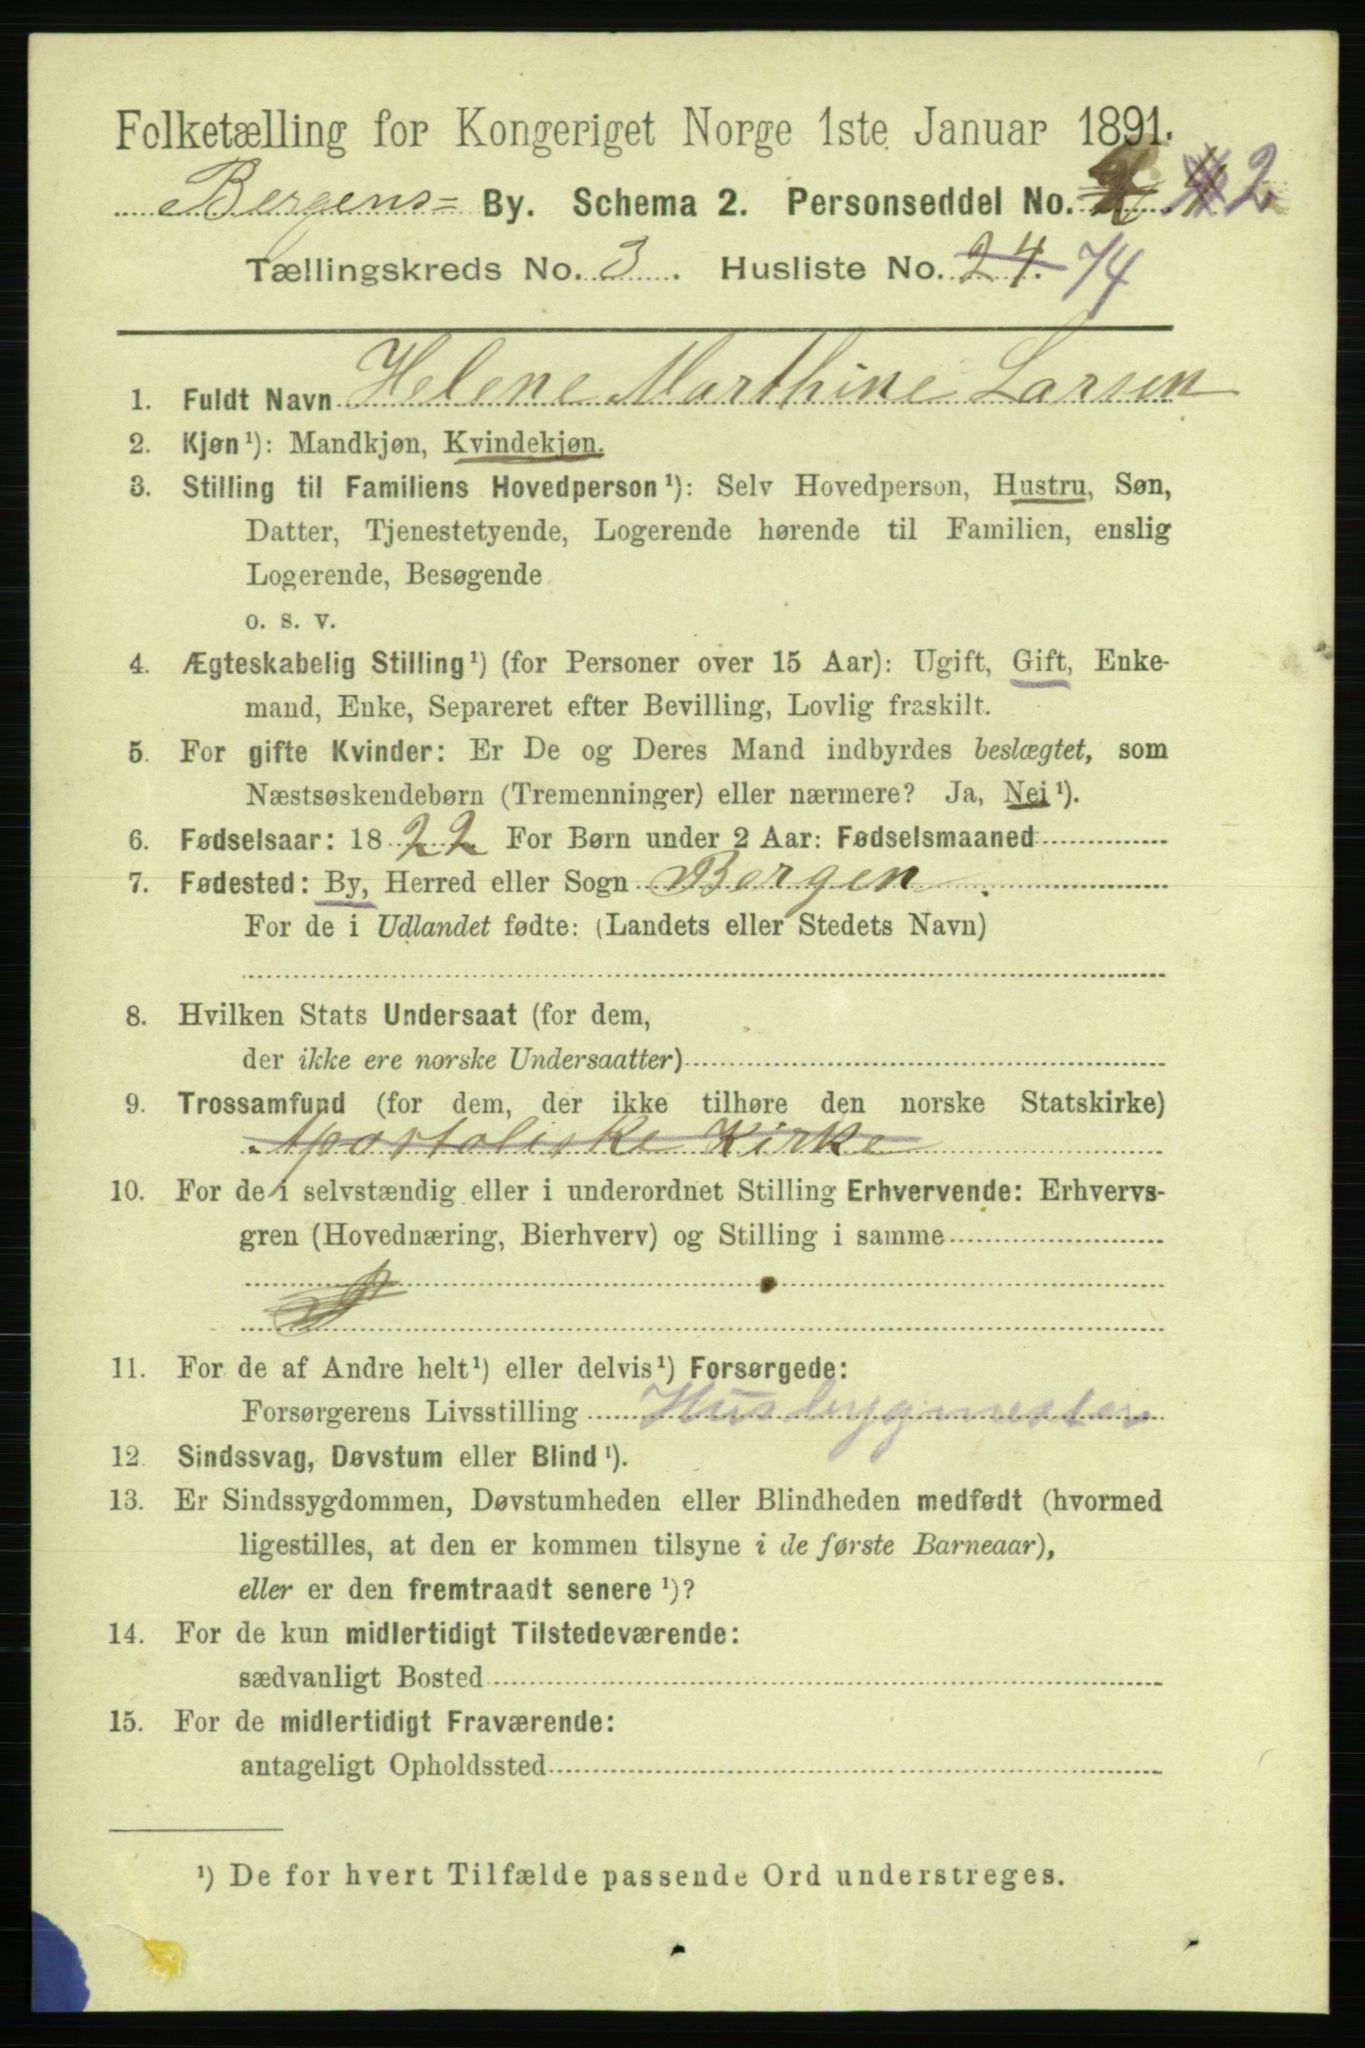 Folketælling for Kongeriget Norge 1ste Januar 1891.
Bergens= By. Schema 2. Personseddel No. 2
Tællingskreds No. 3. Husliste No. 24. 74
1. Fuldt Navn Helene Marthine Larsen
2. Kjøn¹): Mandkjøn, Kvindekjøn.
3. Stilling til Familiens Hovedperson¹): Selv Hovedperson, Hustru, Søn,
Datter, Tjenestetyende, Logerende hørende til Familien, enslig
Logerende, Besøgende
o. s. v.
4. Ægteskabelig Stilling¹) (for Personer over 15 Aar): Ugift, Gift, Enke-
mand, Enke, Separeret efter Bevilling, Lovlig fraskilt.
5. For gifte Kvinder: Er De og Deres Mand indbyrdes beslægtet, som
Næstsøskendebørn (Tremenninger) eller nærmere? Ja, Nei¹).
6. Fødselsaar: 1822 For Børn under 2 Aar: Fødselsmaaned
7. Fødested: By, Herred eller Sogn Bergen.
For de i Udlandet fødte: (Landets eller Stedets Navn)
8. Hvilken Stats Undersaat (for dem,
der ikke ere norske Undersaatter)
9. Trossamfund (for dem, der ikke tilhøre den norske Statskirke)
Apostoliske Kirke
10. For de i selvstændig eller i underordnet Stilling Erhvervende: Erhvervs-
gren (Hovednæring, Bierhverv) og Stilling i samme
11. For de af Andre helt¹) eller delvis¹) Forsørgede:
Forsørgerens Livsstilling Husbygmester
12. Sindssvag, Døvstum eller Blind¹).
13. Er Sindssygdommen, Døvstumheden eller Blindheden medfødt (hvormed
ligestilles, at den er kommen tilsyne i de første Barneaar),
eller er den fremtraadt senere¹)?
14. For de kun midlertidigt Tilstedeværende:
sædvanligt Bosted
15. For de midlertidigt Fraværende:
antageligt Opholdssted
¹) De for hvert Tilfælde passende Ord understreges.